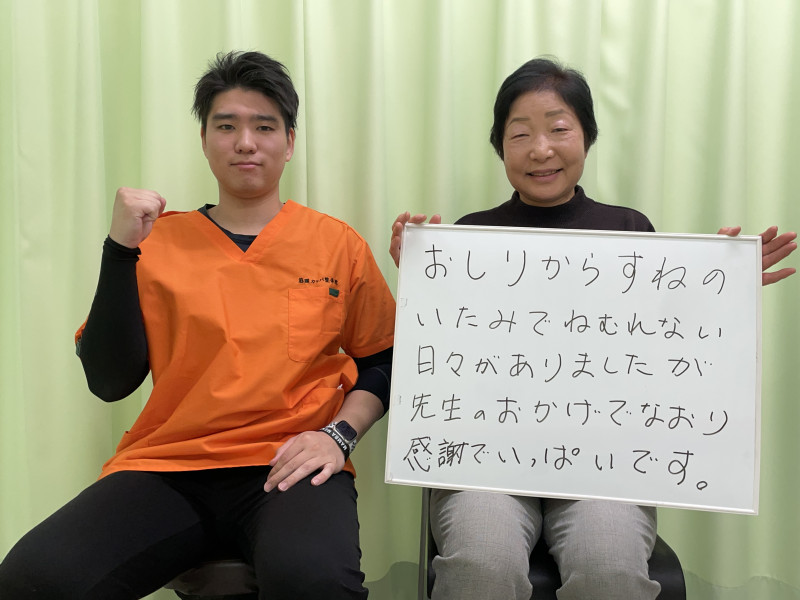 おしりからすねの
いたみでねむれない
日々がありましたが
先生のおかげでなおり
感謝でいっぱいです。